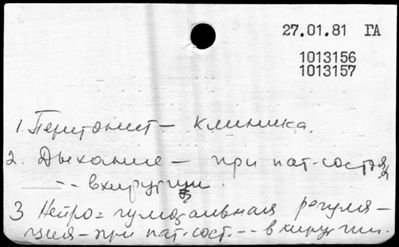 27.01.81 ГА
1013156
1013157
1. Перитонит – клиника.
2. Дыхание – при пат. сост.
-- в хирургии.
3 Нейро=гуморальная регуля-
ция – при пат. сост. -- в хирургии.